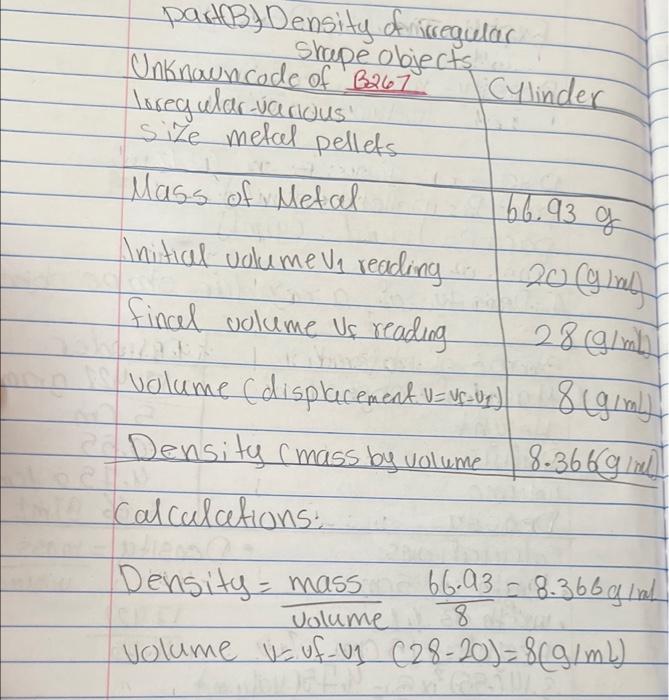 part(B) Density of irregular
shape objects
Unknown code of B267 Cylinder
Irregular various
size metal pellets
Mass of Metal 66.93 g
Initial volume V1 reading 20 (g/ml)
final volume Vf reading 28 (g/ml)
volume (displacement V=Vf-V1) 8 (g/ml)
Density (mass by volume 8.366(g/ml)
Calculations:
Density = mass 66.93 = 8.366 g/ml
volume 8
volume V= Vf-V1 (28-20)=8(g/mL)